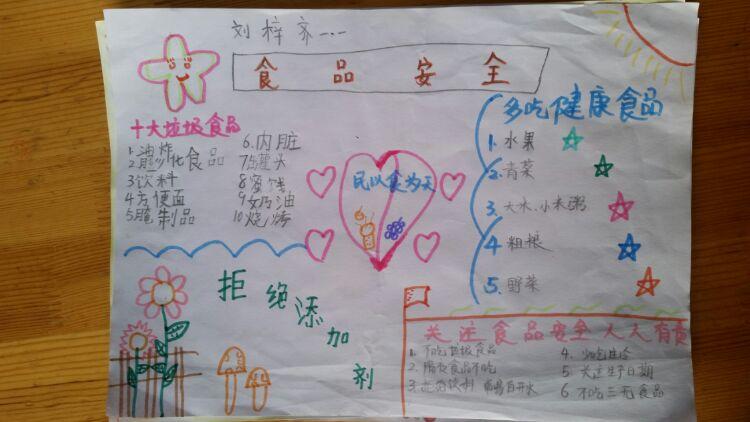 刘梓齐一.一
食品安全
十大垃圾食品
1.油炸
2.煎炒化食品
3饮料
4方便面
5腌制品
6.内脏
7罐头
8蜜饯
9奶油
10烧烤
民以食为天
多吃健康食品
1.水果
2.青菜
3.大米、小米粥
4粗粮
5.野菜
拒绝添加剂
关注食品安全人人有责
1.不吃垃圾食品
2.腐食品不吃
3.饮料 喝白开水
4.少吃
5关注生产日期
6不吃三无食品